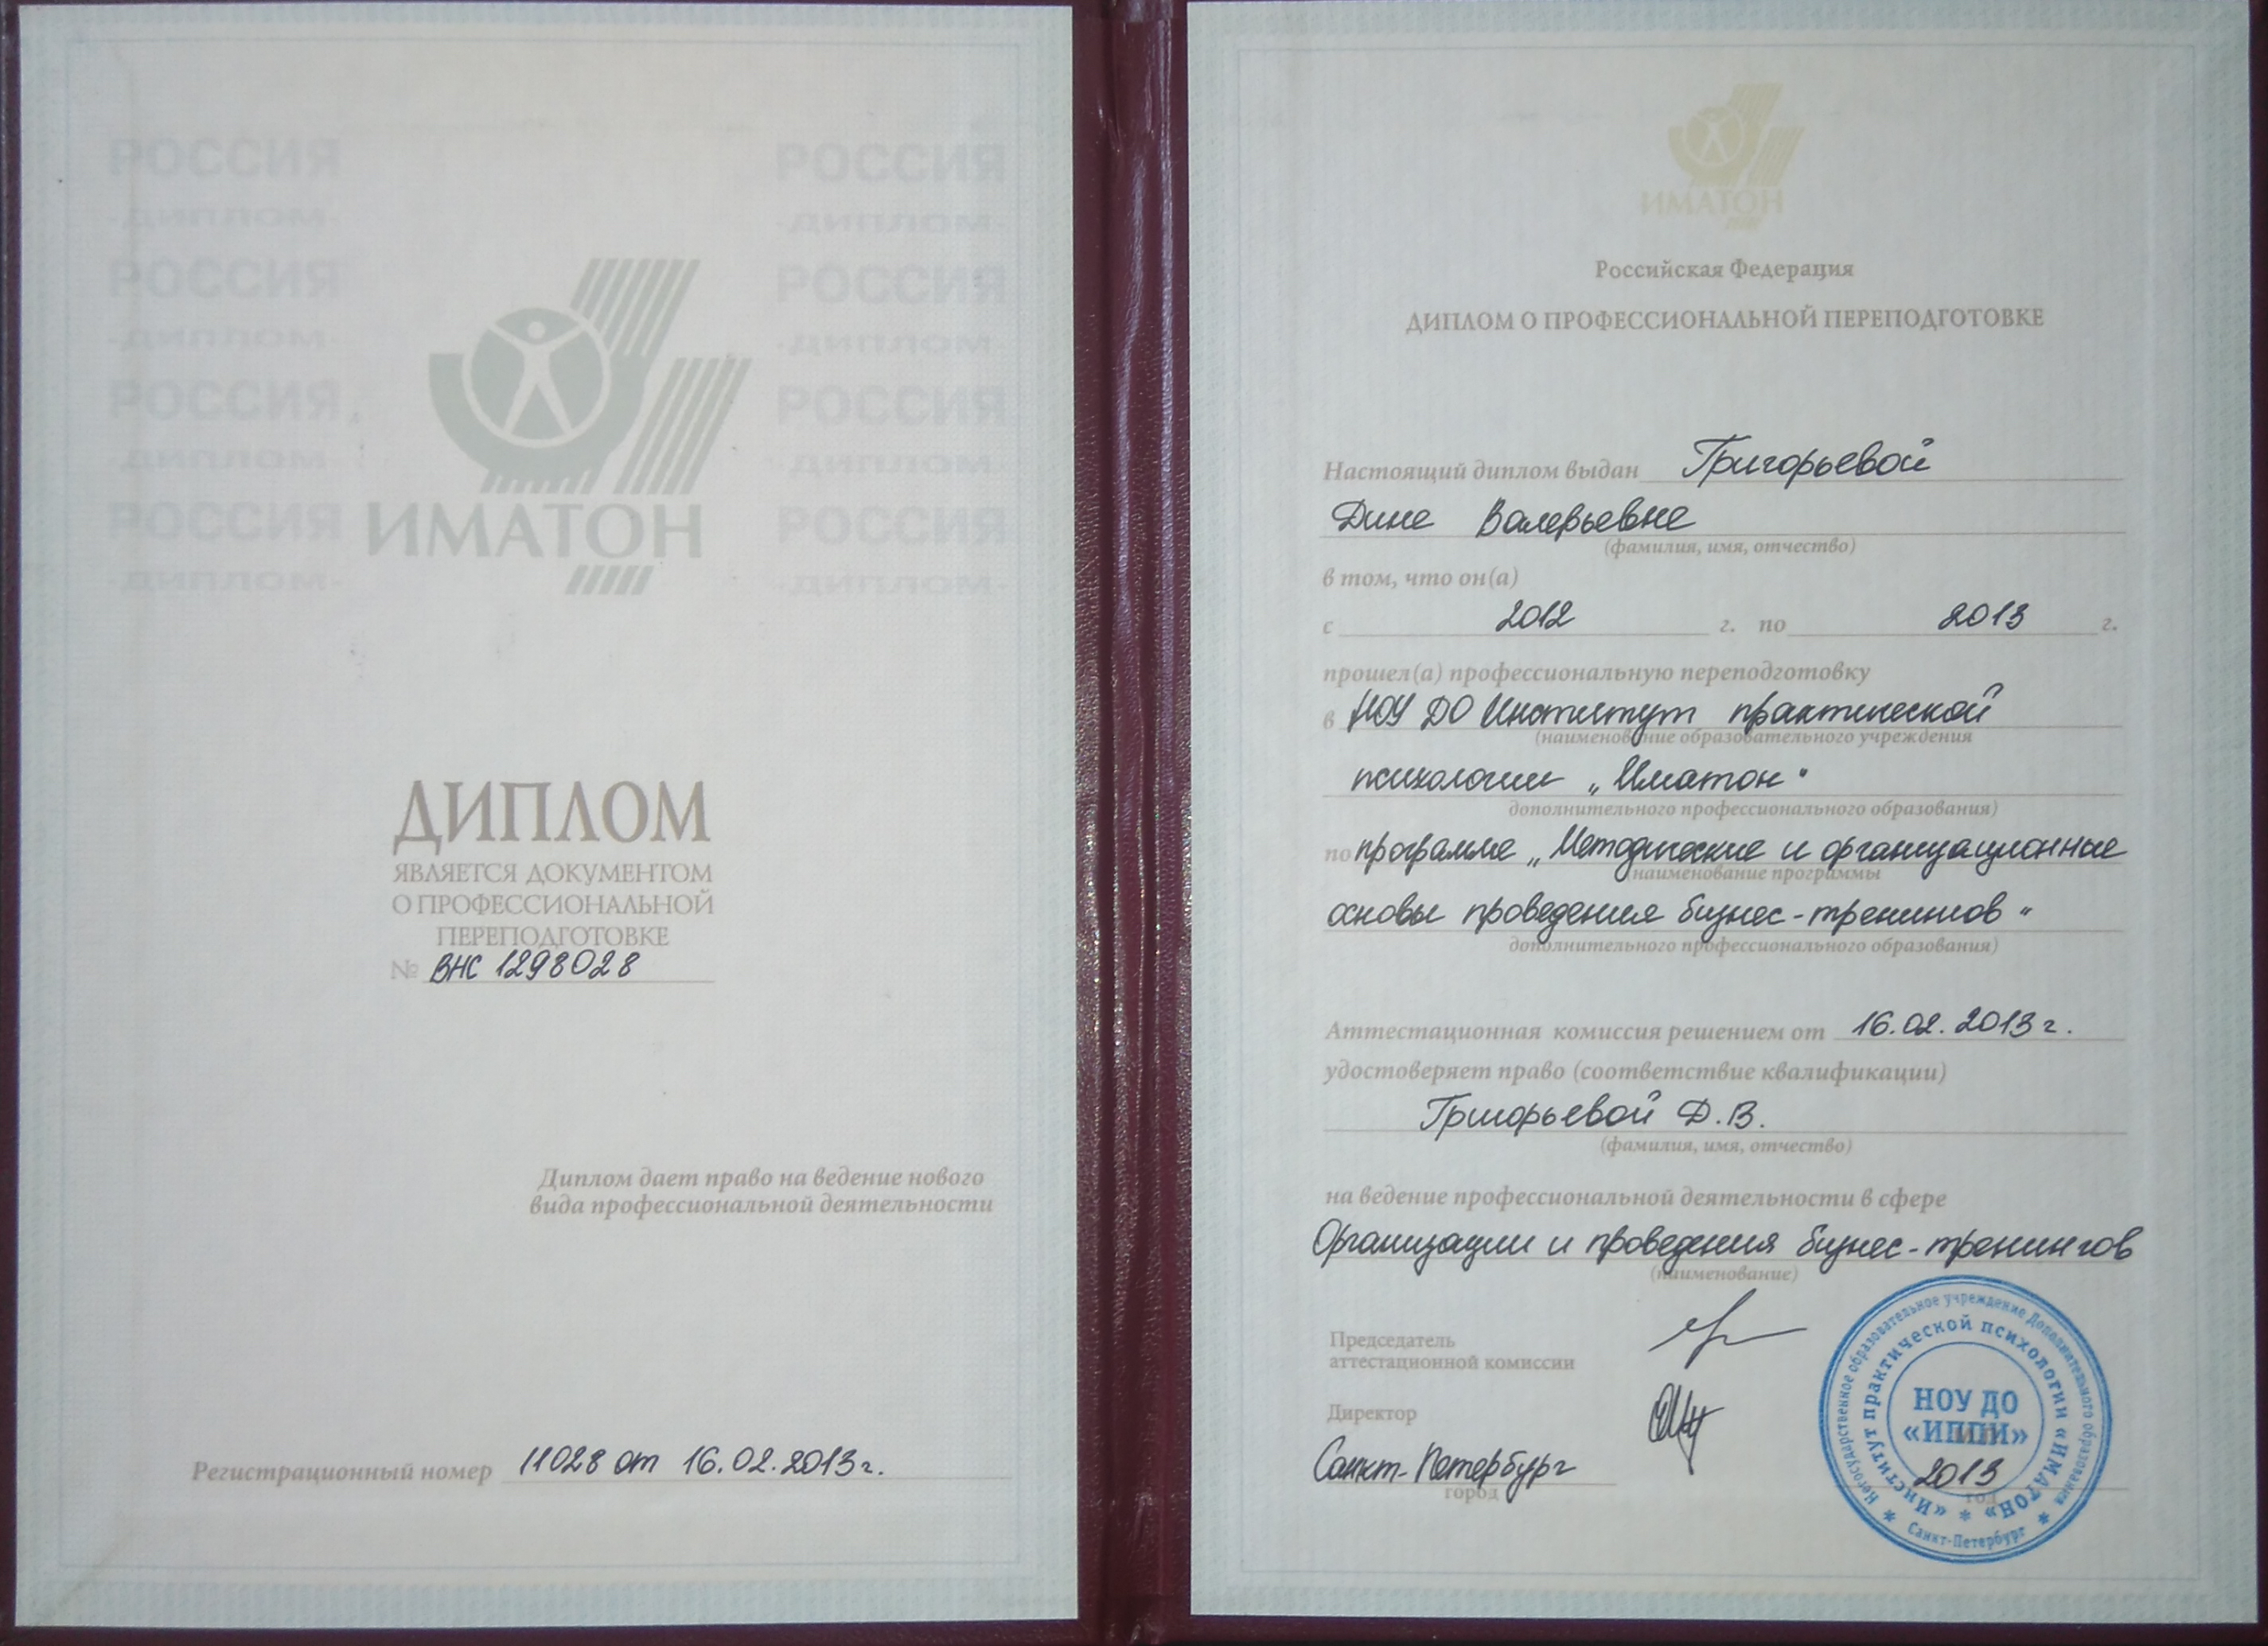 РОССИЯ
ДИПЛОМ
РОССИЯ
ДИПЛОМ
РОССИЯ
ДИПЛОМ
РОССИЯ
ДИПЛОМ
РОССИЯ
ДИПЛОМ
РОССИЯ
ДИПЛОМ
РОССИЯ
ДИПЛОМ
РОССИЯ
ДИПЛОМ
ИМАТОН
ДИПЛОМ
ЯВЛЯЕТСЯ ДОКУМЕНТОМ
О ПРОФЕССИОНАЛЬНОЙ
ПЕРЕПОДГОТОВКЕ
№ ВНС 1298028
Диплом дает право на ведение нового
вида профессиональной деятельности
Регистрационный номер 11028 от 16.02.2013г.
ИМАТОН
Российская Федерация
ДИПЛОМ О ПРОФЕССИОНАЛЬНОЙ ПЕРЕПОДГОТОВКЕ
Настоящий диплом выдан Григорьевой
Дине Валерьевне
(фамилия, имя, отчество)
в том, что он(а)
с 2012 г. по 2013 г.
прошел(а) профессиональную переподготовку
в НОУ ДО Институт практической
(наименование образовательного учреждения
психологии „Иматон"
дополнительного профессионального образования)
по программе „Методические и организационные
наименование программы
основы проведения бизнес-тренингов"
дополнительного профессионального образования)
Аттестационная комиссия решением от 16.02.2013г.
удостоверяет право (соответствие квалификации)
Григорьевой Д.В.
(фамилия, имя, отчество)
на ведение профессиональной деятельности в сфере
Организации и проведения бизнес-тренингов
(наименование)
Председатель
аттестационной комиссии
Директор
Санкт-Петербург
город
2013
год
Негосударственное образовательное учреждение Дополнительного образования
«Институт практической психологии «ИМАТОН»
НОУ ДО
«ИППИ»
Санкт-Петербург